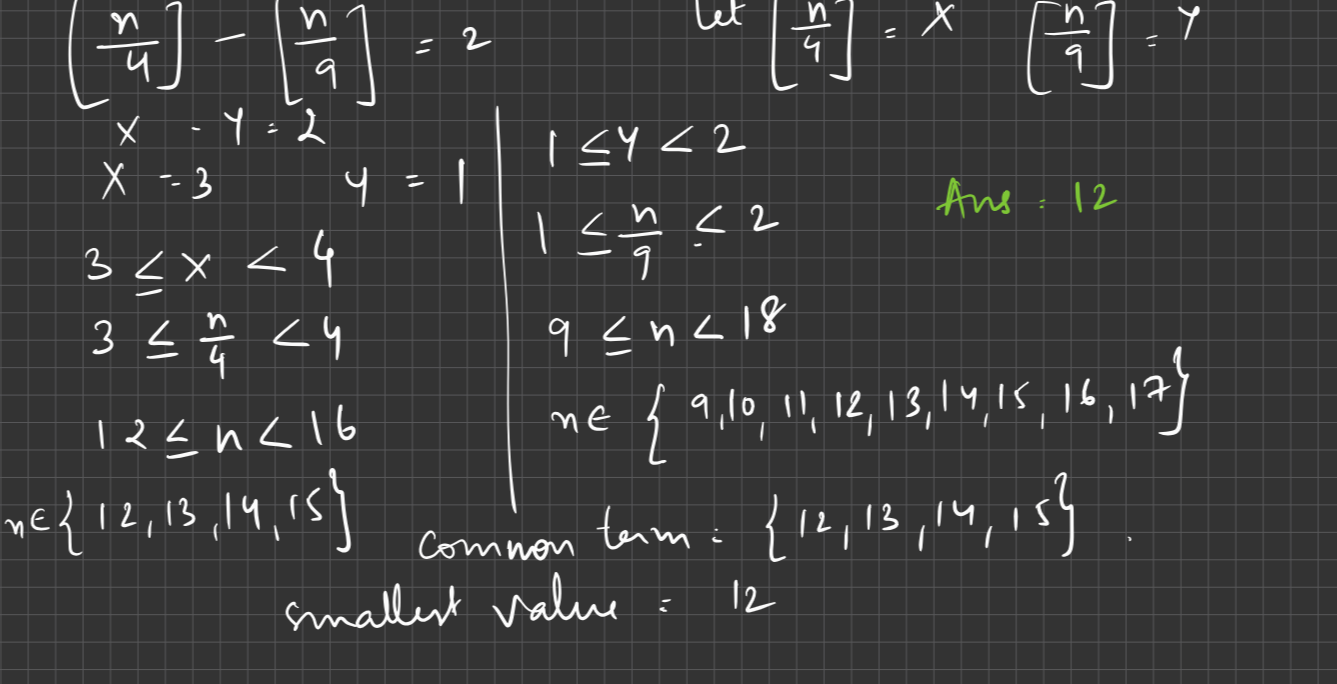 [n/4] - [n/9] = 2
Let [n/4] = X [n/9] = Y
X - Y = 2
X = 3 Y = 1
3 ≤ X < 4
3 ≤ n/4 < 4
12 ≤ n < 16
n ∈ {12, 13, 14, 15}
1 ≤ Y < 2
1 ≤ n/9 < 2
9 ≤ n < 18
n ∈ {9, 10, 11, 12, 13, 14, 15, 16, 17}
Ans = 12
common term = {12, 13, 14, 15}.
smallest value = 12